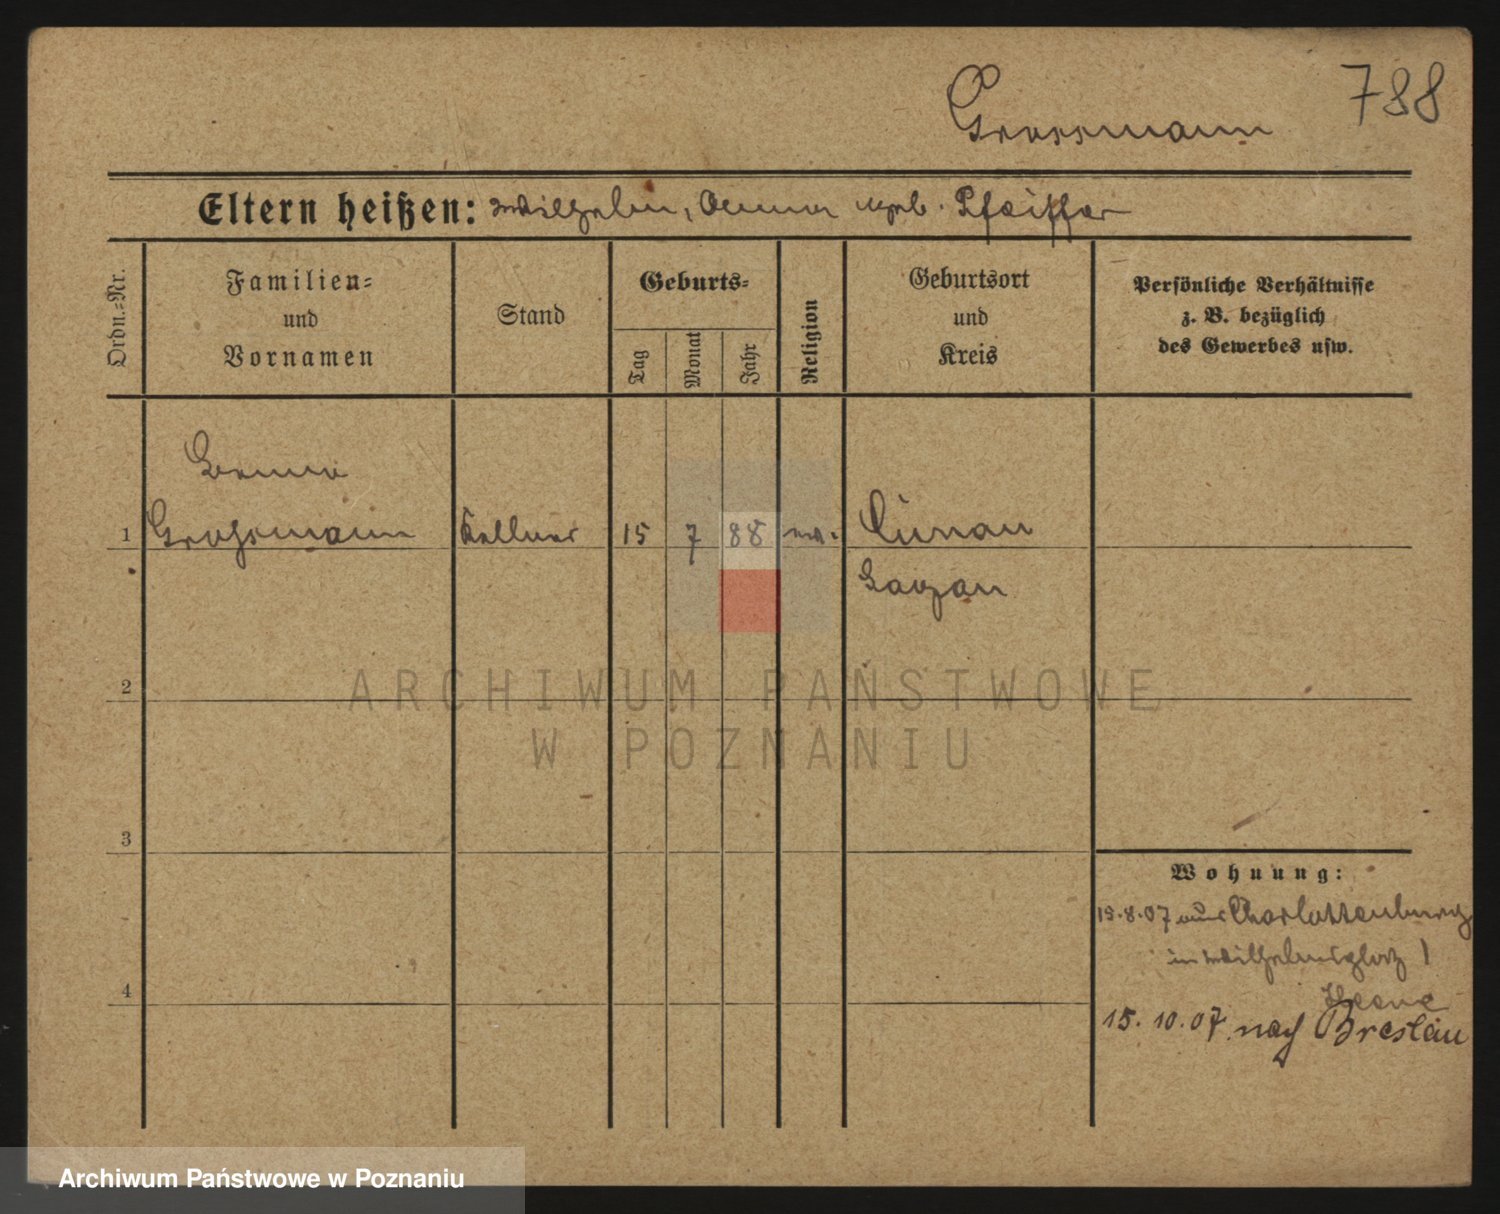 788
Grossmann
Eltern heißen: Wilhelm, Anna geb. Pfeiffer
Ordn.-Nr.
Familien-
und
Vornamen
Stand
Geburts-
Tag
Monat
Jahr
Religion
Geburtsort
und
Kreis
Persönliche Verhältnisse
z. B. bezüglich
des Gewerbes usw.
Benno
1 Grossmann Kellner 15 7 88 ev. Cunau
Sagan
2
ARCHIWUM PAŃSTWOWE
W POZNANIU
3
Wohnung:
15.8.07 aus Charlottenburg
in Wilhelmsplatz 1
4
15. 10. 07 nach Breslau
Archiwum Państwowe w Poznaniu